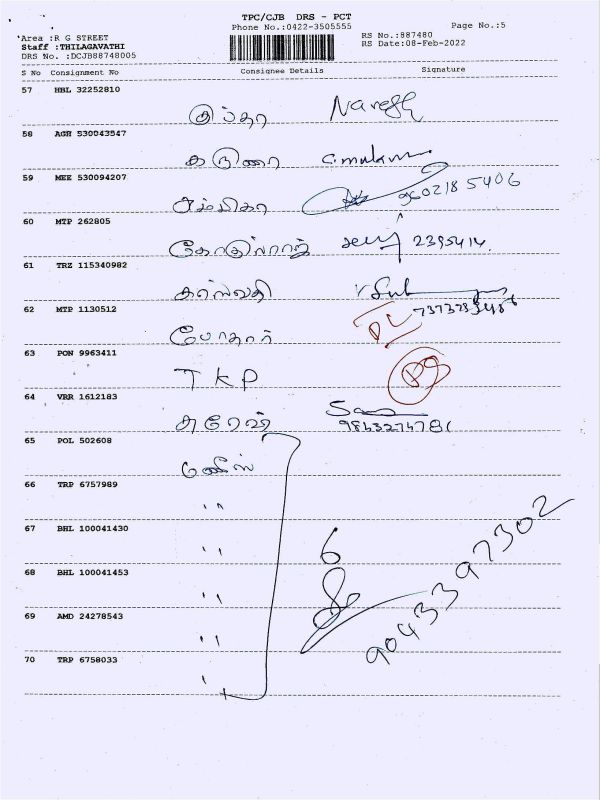 TPC/CJB DRS - PCT
Phone No.:0422-3505555
Page No.:5
Area :R G STREET
Staff :THILAGAVATHI
DRS No. :DCJB88748005
RS No.:887480
RS Date:08-Feb-2022
S No Consignment No Consignee Details Signature
57 HBL 32252810
குப்தா Naresh
58 AGH 530043547
கருணா
59 MEE 530094207
9602185406
60 MTP 262805
கோதில்ராஜ் 2395414
61 TRZ 115340982
சரஸ்வதி
62 MTP 1130512
போதார்
63 PON 9963411
TKP
64 VRR 1612183
சுரேஷ்
9843274781
65 POL 502608
மணீஸ்
66 TRP 6757989
"
67 BHL 100041430
"
68 BHL 100041453
"
6
69 AMD 24278543
"
9043397302
70 TRP 6758033